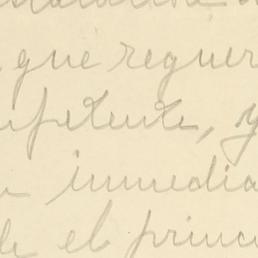 que requer
mpetente, y
inmedia
de el princ